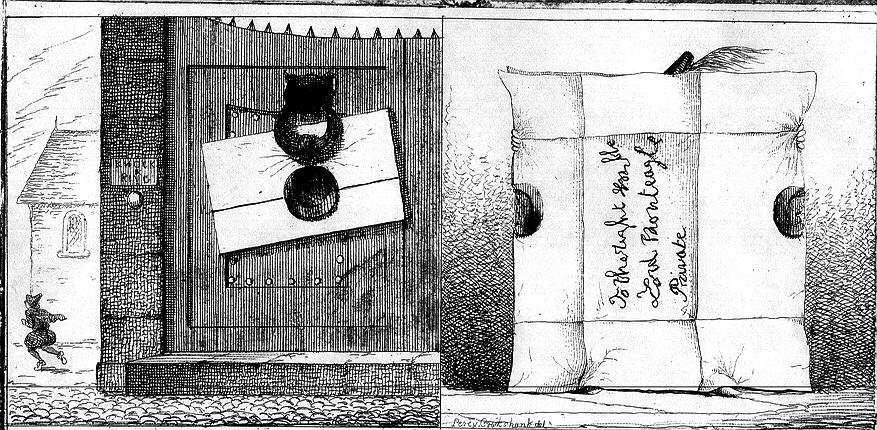 To the right Honble
Lord Monteagle
Private
Percy Cruikshank del